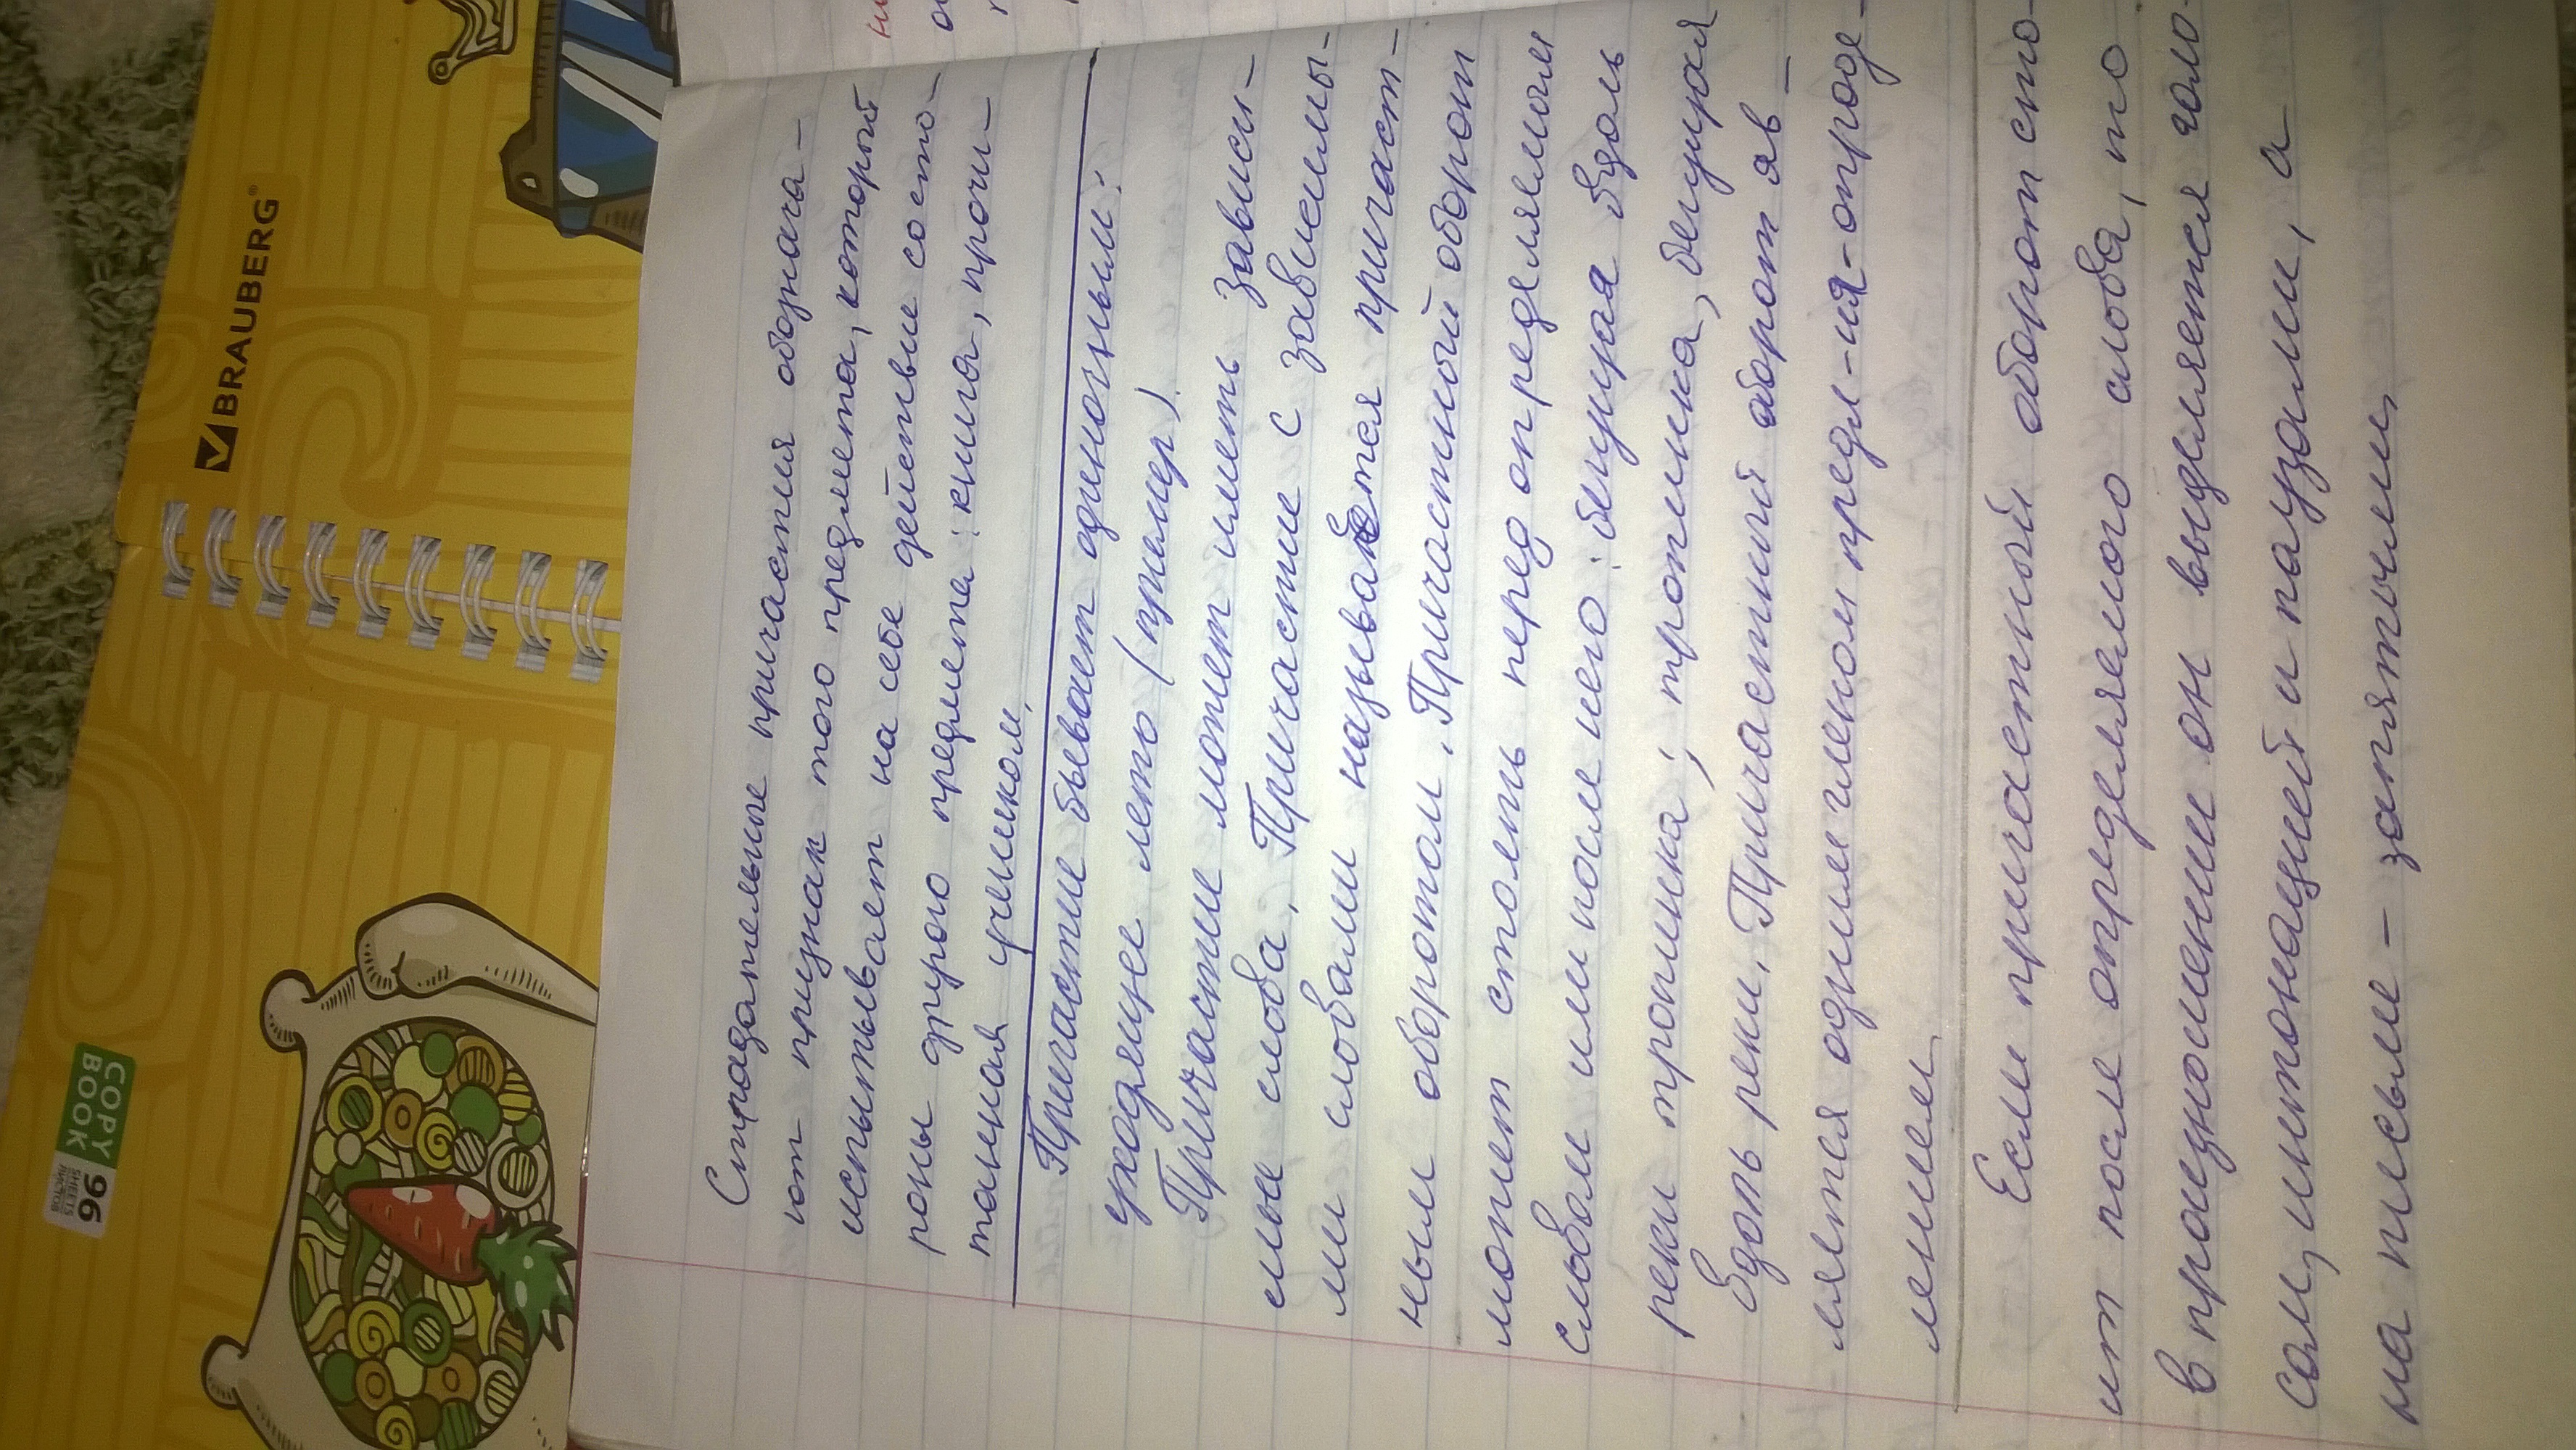 BRAUBERG®
COPY
BOOK
96
SHEETS
ЛИСТОВ
Страдательные причастия обознача-
ют признак того предмета, который
испытывает на себе действие со сто-
роны другого предмета: книга, прочи-
танная учеником.
Причастие бывает одиночным:
уходящее лето (пример).
Причастие может иметь зависи-
мые слова. Причастие с зависимы-
ми словами называется причаст-
ным оборотом. Причастный оборот
может стоять перед определяемым
словом или после него: бегущая вдоль
реки тропинка; тропинка, бегущая
вдоль реки. Причастний оборот яв-
ляется одним членом предл-ия-опреде-
лением.
Если причастный оборот сто-
ит после определяемого слова, то
в произношении он выделяется голо-
сом, интонацией и паузами, а
на письме - запятыми.